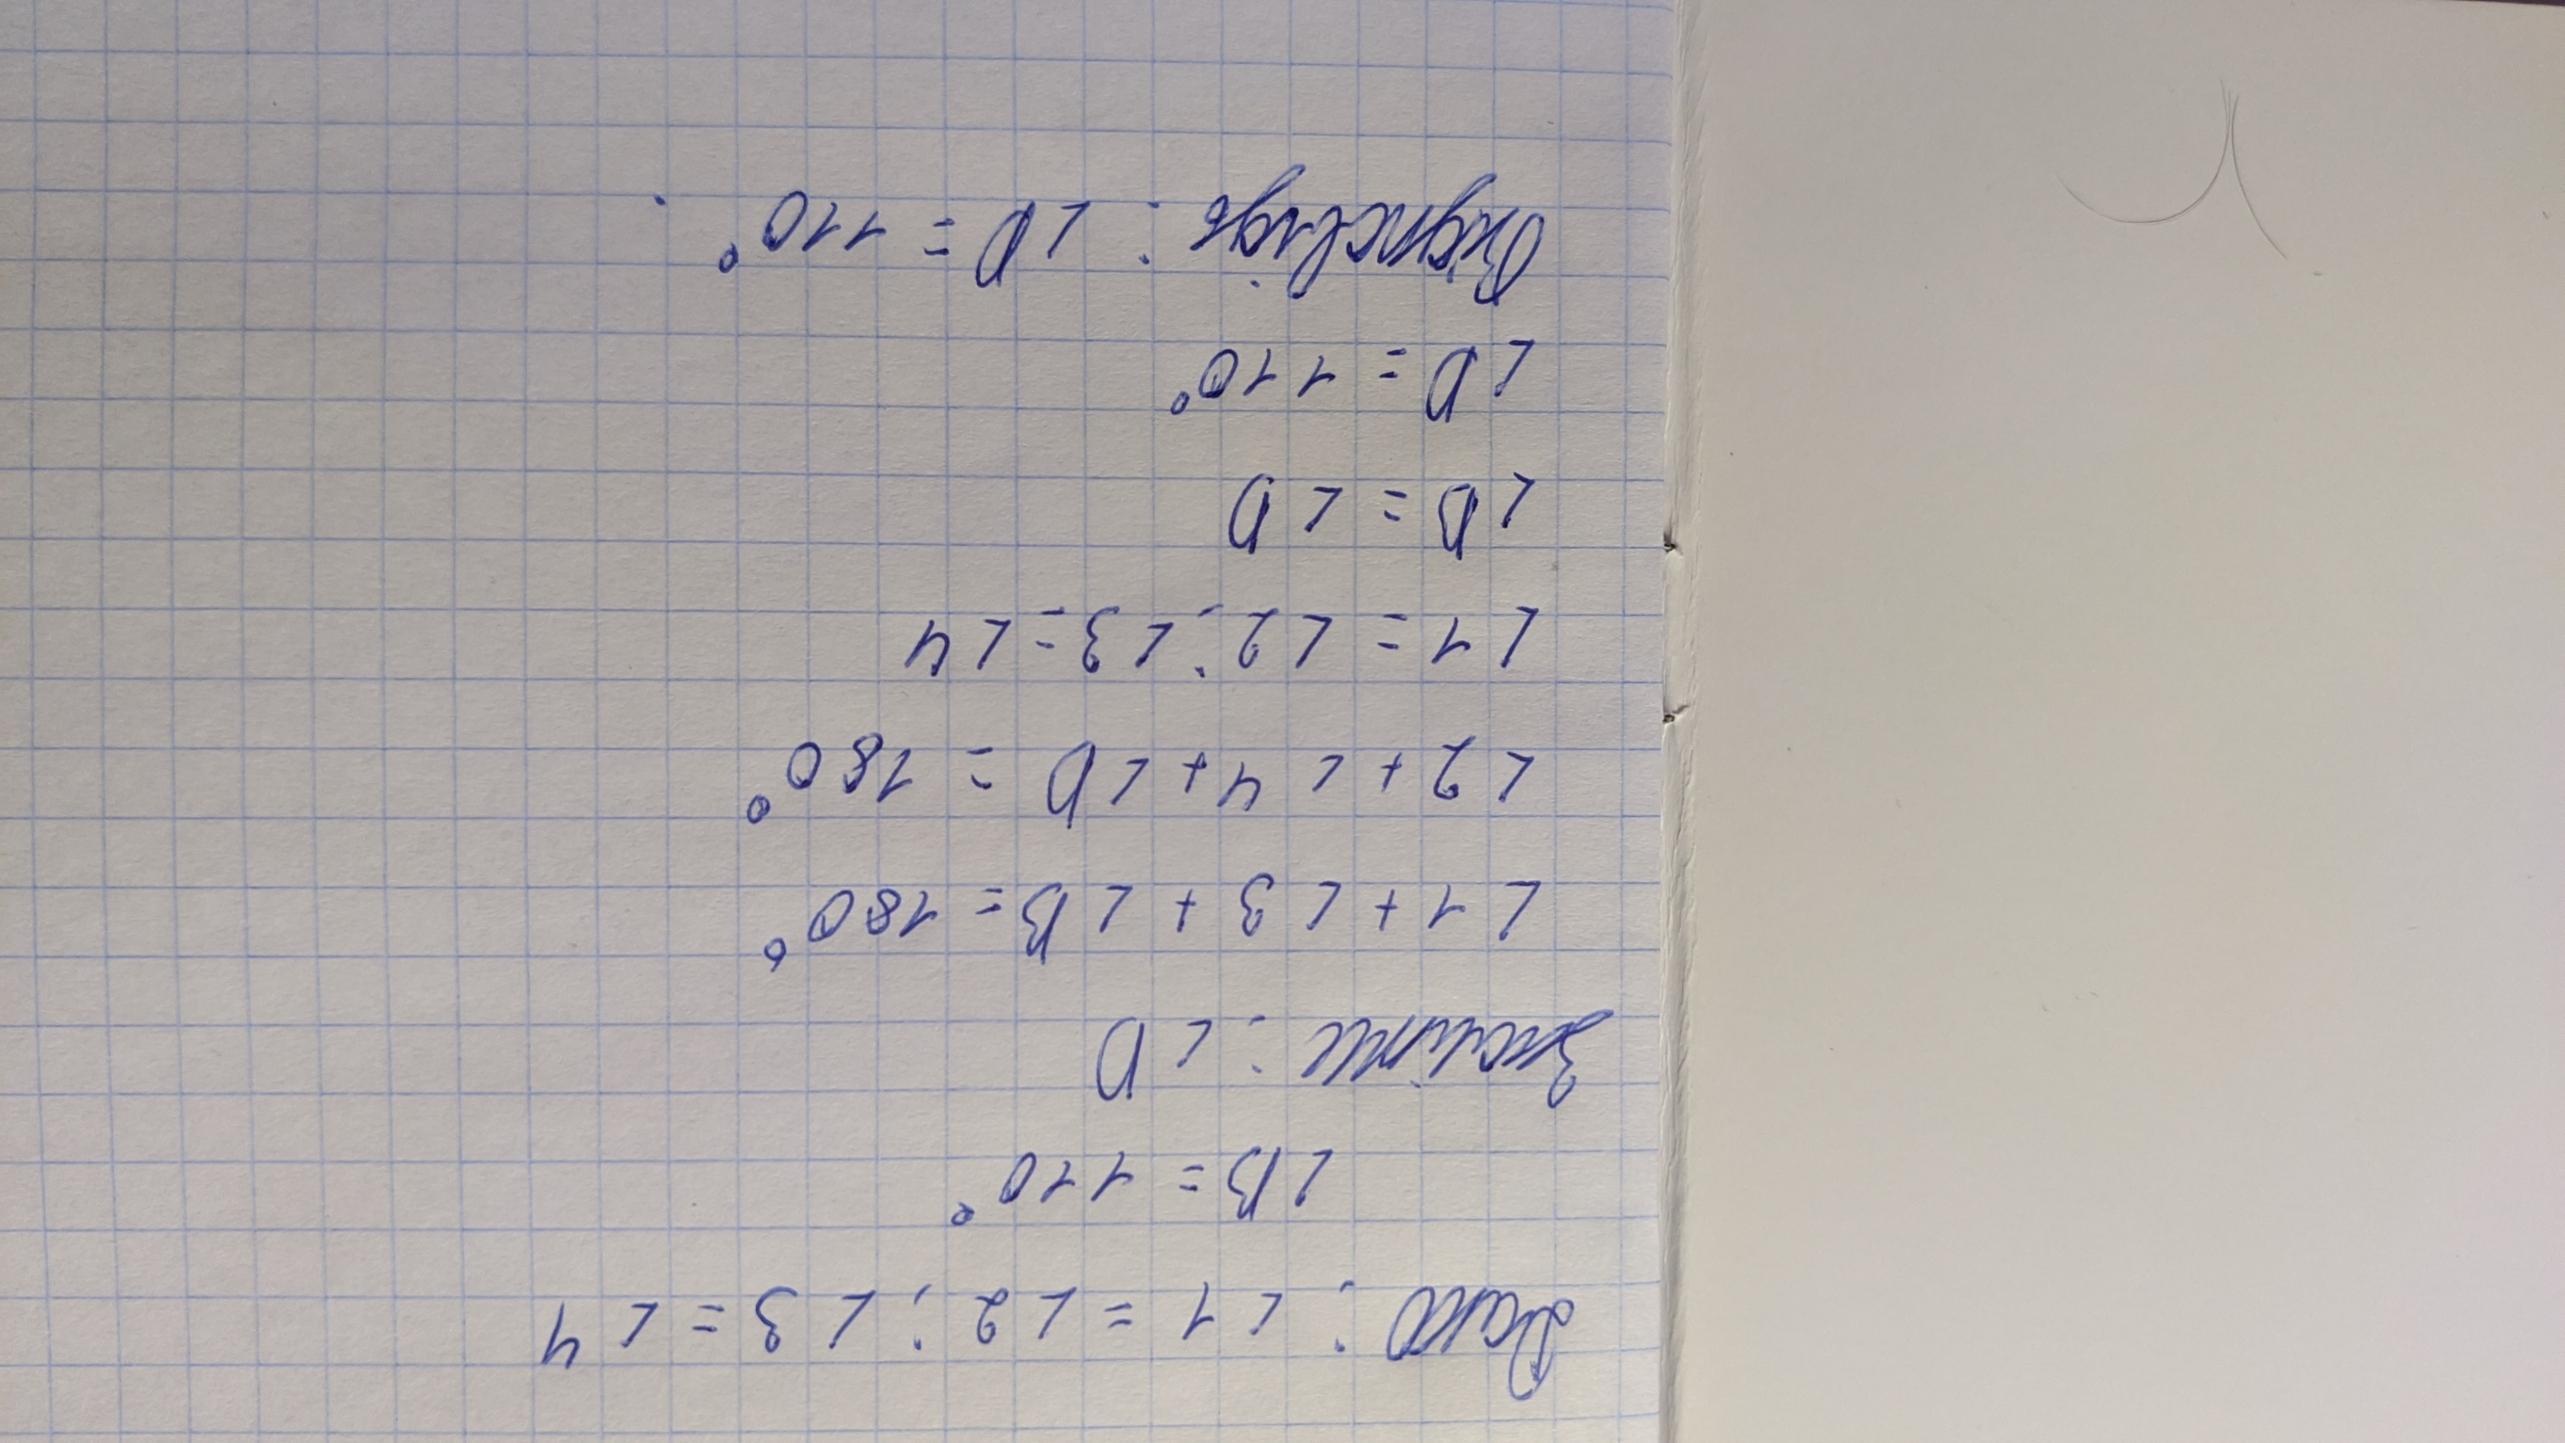 Дано: ∠1 = ∠2; ∠3 = ∠4
∠B = 110°
Знайти: ∠D
∠1 + ∠3 + ∠B = 180°
∠2 + ∠4 + ∠D = 180°
∠1 = ∠2; ∠3 = ∠4
∠B = ∠D
∠D = 110°
Відповідь: ∠D = 110°.